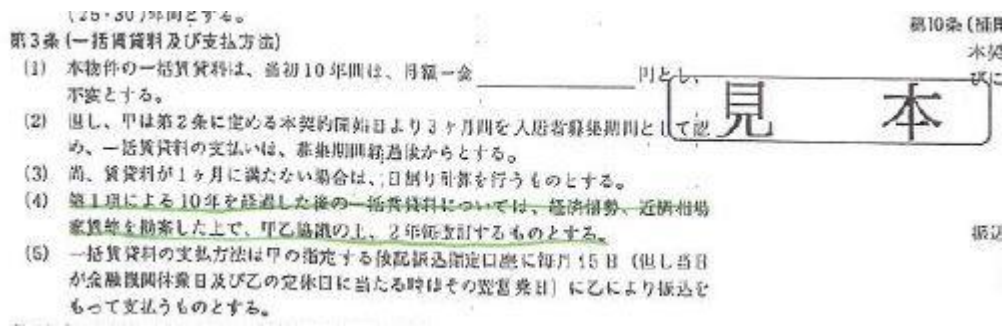 (25・30)年間とする。
第3条(一括賃貸料及び支払方法)
(1) 本物件の一括賃貸料は、当初10年間は、月額一金 円とし、
不変とする。
(2) 但し、甲は第2条に定める本契約開始日より3ヶ月間を入居者募集期間として認
め、一括賃貸料の支払いは、募集期間経過後からとする。
(3) 尚、賃貸料が1ヶ月に満たない場合は、日割り計算を行うものとする。
(4) 第1項による10年を経過した後の一括賃貸料については、経済情勢、近隣相場
家賃等を勘案した上で、甲乙協議の上、2年毎改訂するものとする。
(5) 一括賃貸料の支払方法は甲の指定する後記振込指定口座に毎月15日(但し当日
が金融機関休業日及び乙の定休日に当たる時はその翌営業日)に乙により振込を
もって支払うものとする。
見本
第10条(
本契
びに
振込